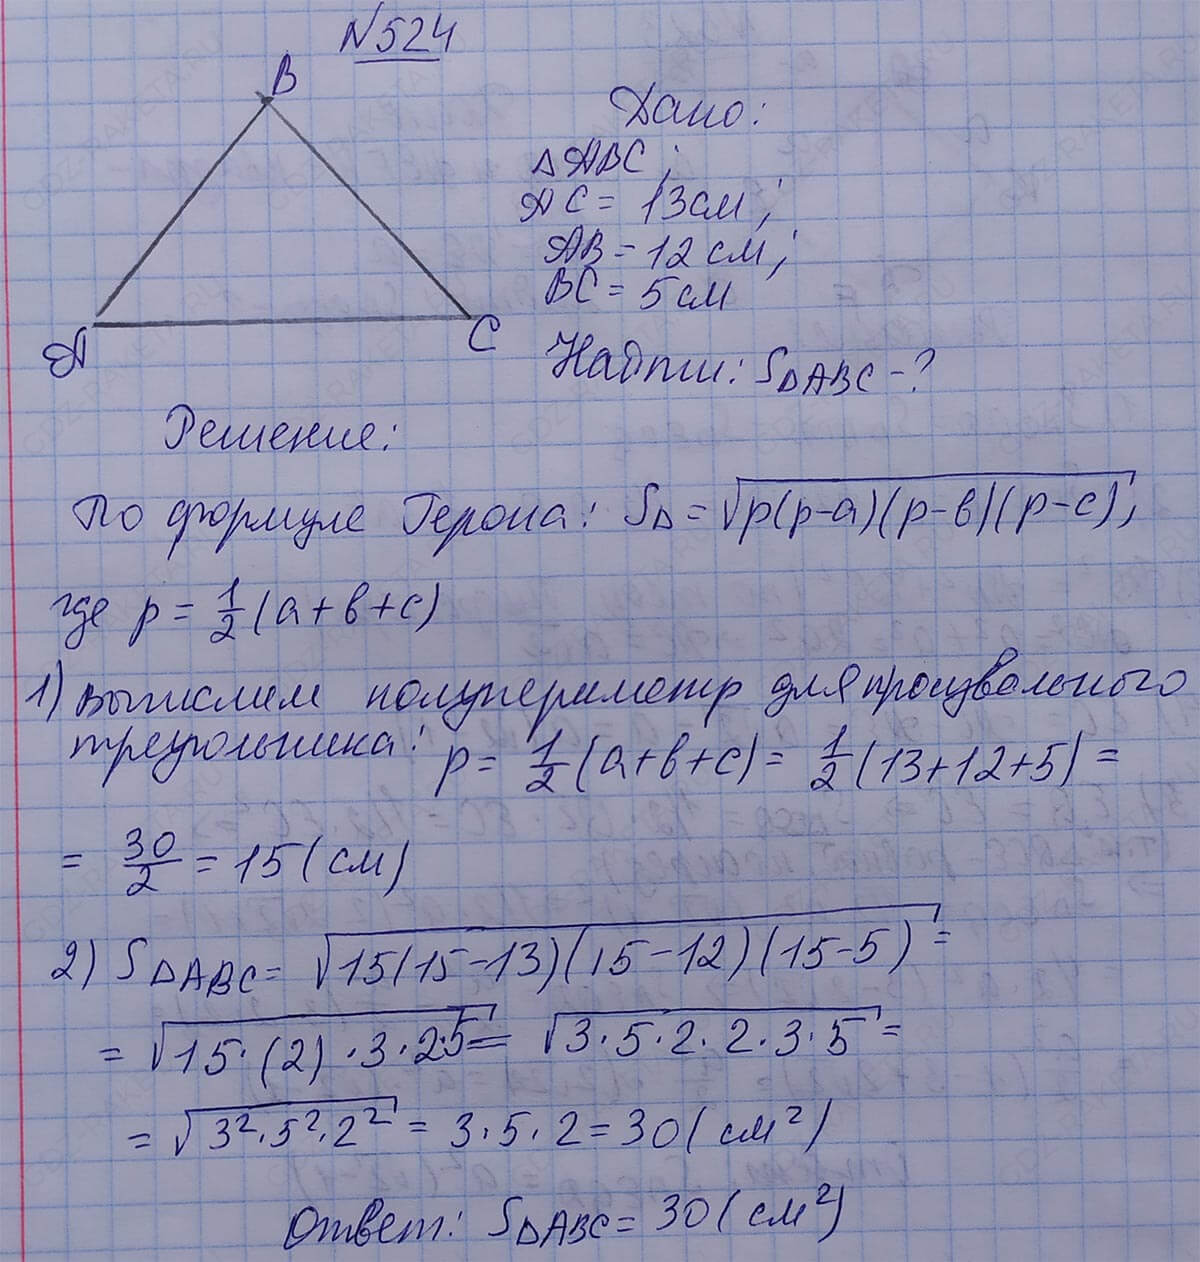 N524
B
A
C
Дано:
△ABC;
AC = 13см;
AB = 12 см;
BC = 5 см
Найти: S△ABC - ?
Решение:
По формуле Герона: S△ = √p(p-a)(p-в)(p-c),
где p = 1/2 (a + в + c)
1) Вычислим полупериметр для произвольного
треугольника: p = 1/2 (a+в+c) = 1/2 (13+12+5) =
= 30/2 = 15 (см)
2) S△ABC = √15(15-13)(15-12)(15-5) =
= √15·(2)·3·2·5 = √3·5·2·2·3·5 =
= √3²·5²·2² = 3·5·2 = 30 (см²)
Ответ: S△ABC = 30 (см²)